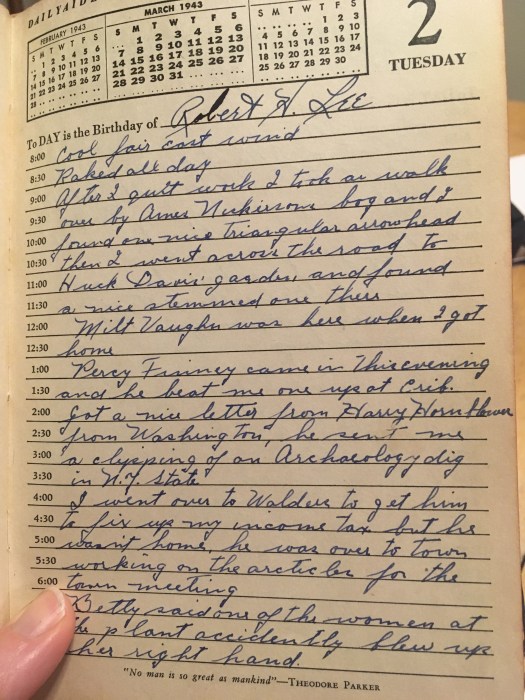 DAILYAIDE
FEBRUARY 1943
S M T W T F S
1 2 3 4 5 6
7 8 9 10 11 12 13
14 15 16 17 18 19 20
21 22 23 24 25 26 27
28
MARCH 1943
S M T W T F S
1 2 3 4 5 6
7 8 9 10 11 12 13
14 15 16 17 18 19 20
21 22 23 24 25 26 27
28 29 30 31
S M T W T F S
1 2 3
4 5 6 7 8 9 10
11 12 13 14 15 16 17
18 19 20 21 22 23 24
25 26 27 28 29 30
2
TUESDAY
To DAY is the Birthday of Robert H. Lee
8:00 Cool fair east wind
8:30 Raked all day
9:00 After I quit work I took a walk
9:30 over by Ames Nickersons bog and I
10:00 found one nice triangular arrowhead
10:30 then I went across the road to
11:00 Huck Davis' garden and found
11:30 a nice stemmed one there
12:00 Milt Vaughn was here when I got
12:30 home
1:00 Percy Finney came in this evening
1:30 and he beat me one up at Crib.
2:00 Got a nice letter from Harry Hornblower
2:30 from Washington, he sent me
3:00 a clipping of an Archaeology dig
3:30 in N.Y. State
4:00 I went over to Walders to get him
4:30 to fix up my income tax but he
5:00 wasn't home, he was over to town
5:30 working on the arcticles for the
6:00 town meeting
Betty said one of the women at
the plant accidently blew up
her right hand.
"No man is so great as mankind"—THEODORE PARKER